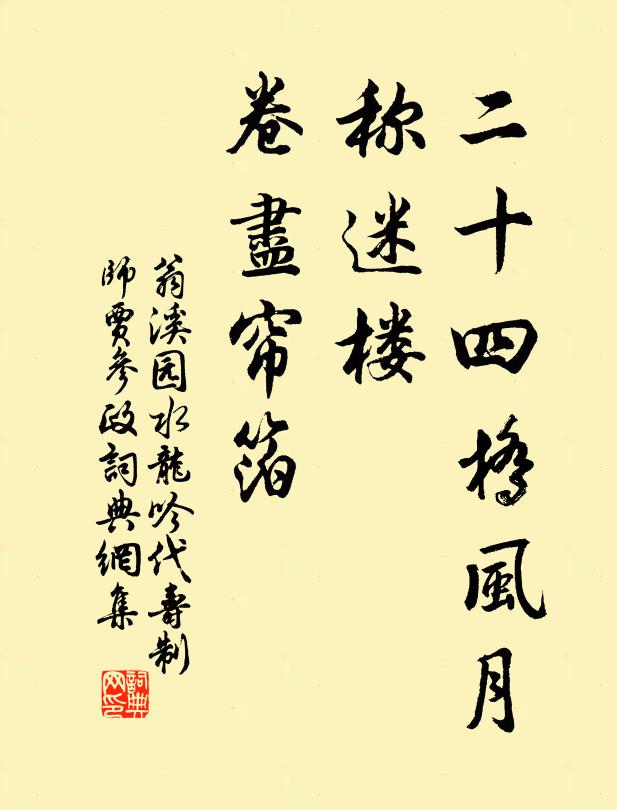 二十四橋風月
称迷楼
卷盡帘箔
翁溪园水龍吟代壽制
師賈參政詞典網集
詞典
网印